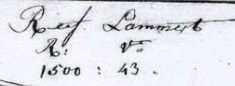 Reef Lammert
R: v^n
1500 : 43.